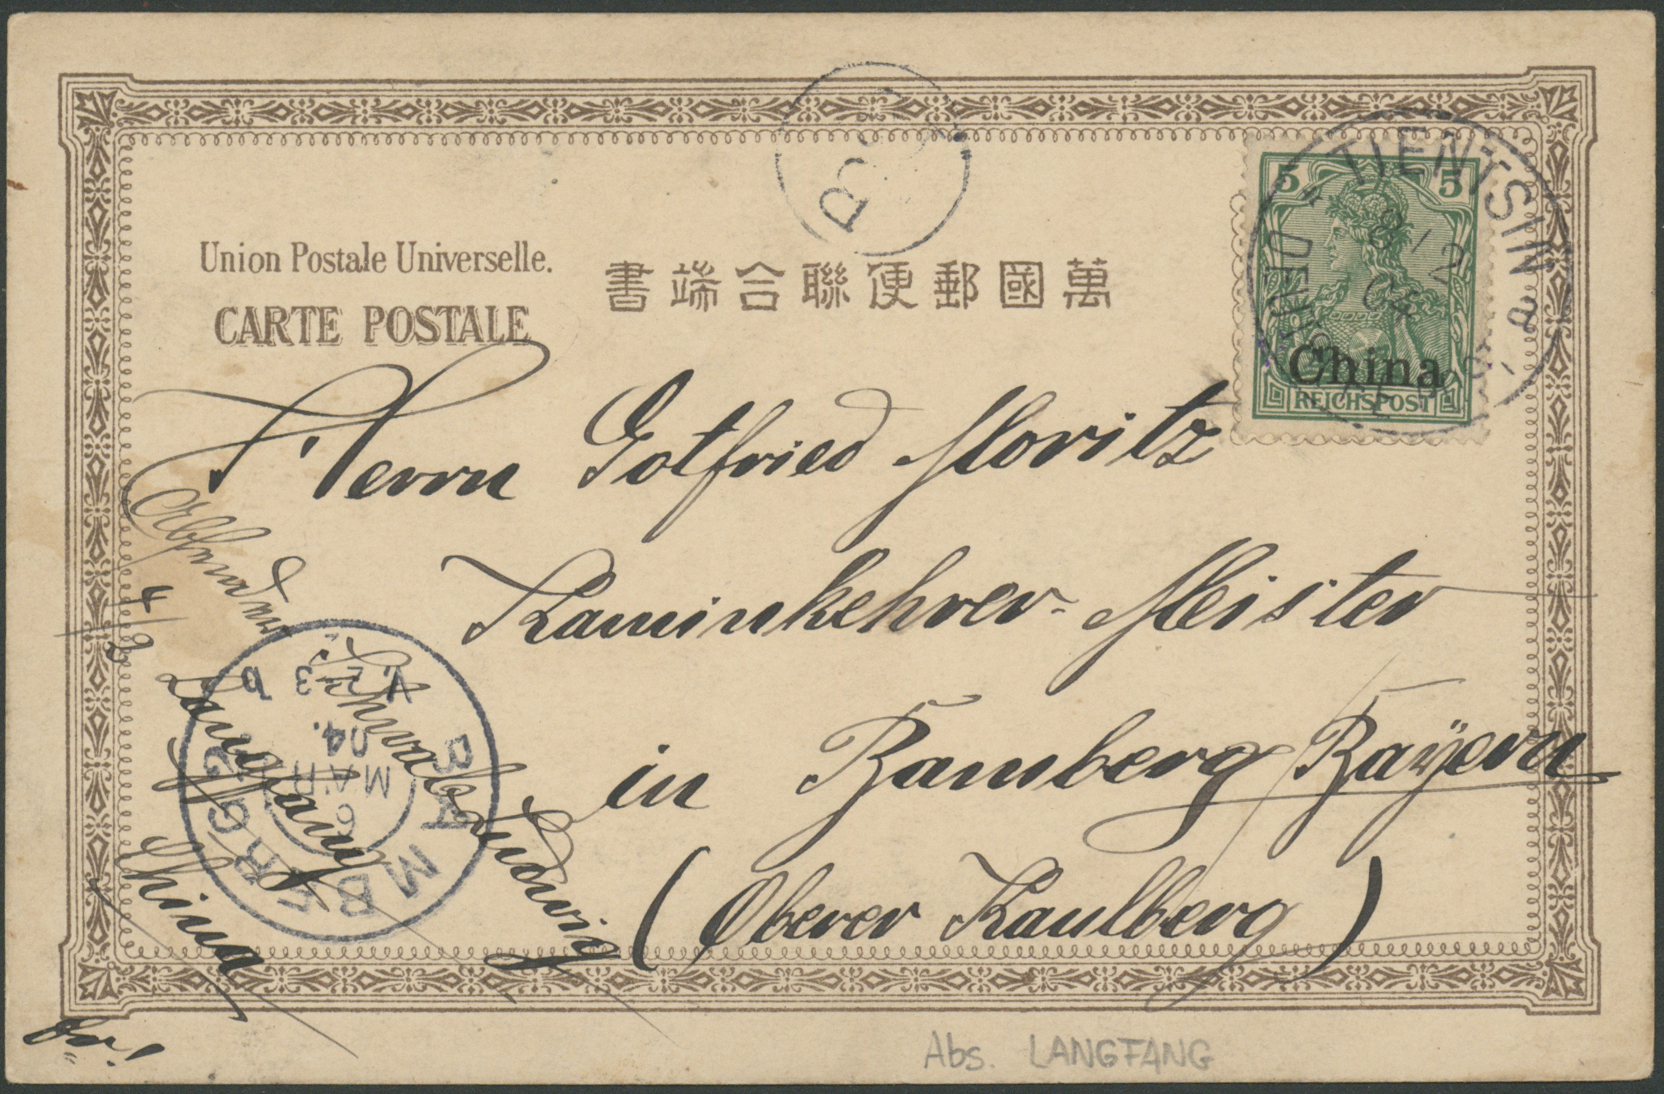 Union Postale Universelle.
CARTE POSTALE
書端合聯便郵國萬
5 5
China
REICHSPOST
TIENTSIN
8/2
04
Herrn Gotfried Moritz
Kaminkehrer-Meister
in Bamberg Bayern
(Oberer Kaulberg)
Absender
Schwab Ludwig
Langfang
China
BAMBERG 2
6
MAR
04.
V. 7-8 b
Abs. LANGFANG